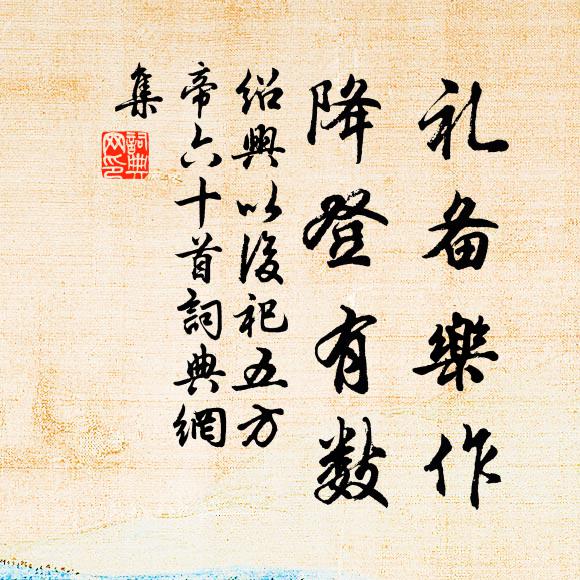 礼备樂作
降登有数
绍興以後祀五方
帝六十首詞典網
集
詞典网印